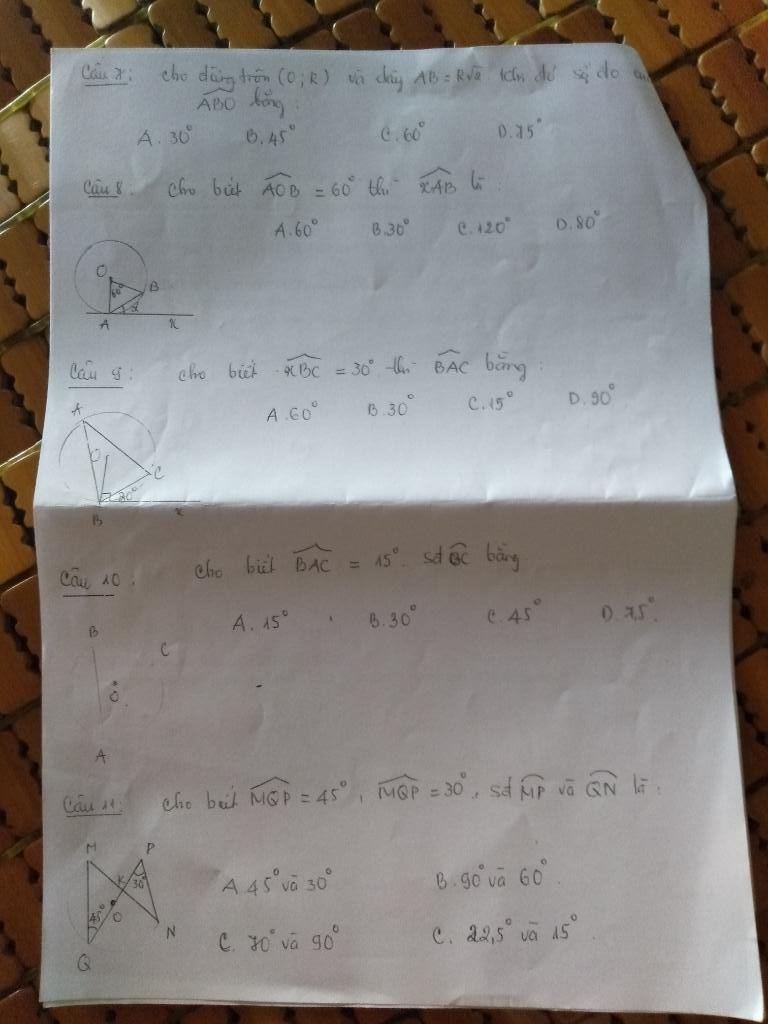 Câu 7: Cho đường tròn (O; R) và dây AB = R√2 Khi đó số đo
ABO bằng:
A. 30° B. 45° C. 60° D. 75°
Câu 8: Cho biết AOB = 60° thì xAB là:
A. 60° B. 30° C. 120° D. 80°
O
60°
B
A x
Câu 9: Cho biết xBC = 30° thì BAC bằng:
A. 60° B. 30° C. 15° D. 90°
A
O
C
30°
B x
Câu 10: Cho biết BAC = 15°. sđ BC bằng
A. 15° B. 30° C. 45° D. 7,5°
B
C
O
A
Câu 11: Cho biết MQP = 45°, MQP = 30°, sđ MP và QN là:
M P
K 30°
A. 45° và 30° B. 90° và 60°
45° O
N
C. 70° và 90° C. 22,5° và 15°.
Q